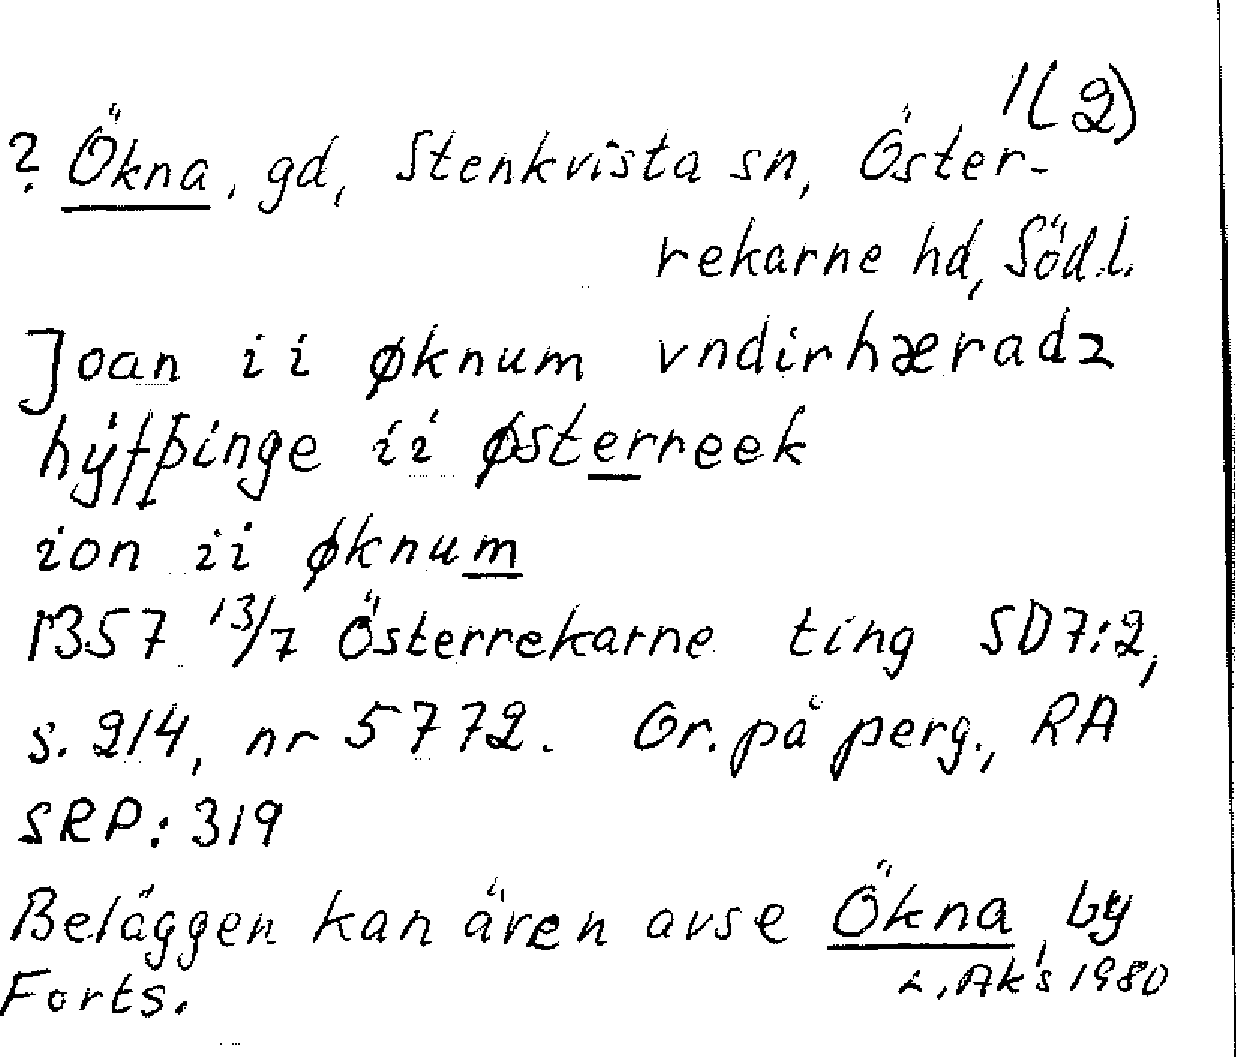 1(2)
? Ökna, gd, Stenkvista sn, Öster-
rekarne hd, Södl.
Joan ii øknum vndirhæradz
hýfþinge ii østerreek
ion ii øknum
1357 13/7 Österrekarne ting SD7:2,
s. 214, nr 5772. Or. på perg., RA
SRP: 319
Beläggen kan även avse Ökna, by
Forts. 1980